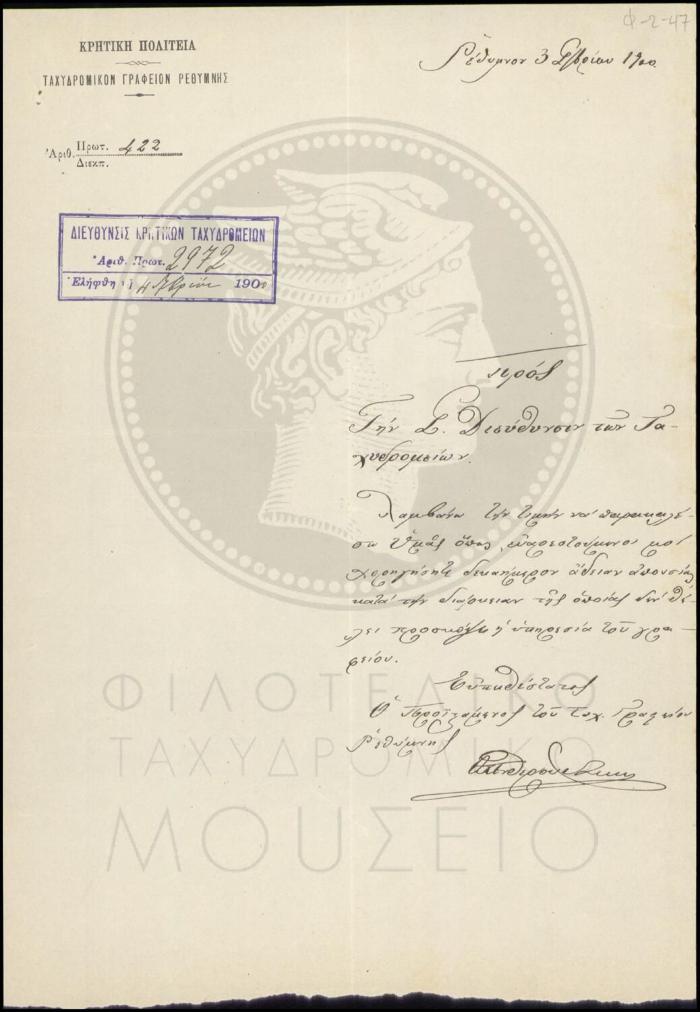 Φ-2-47
ΚΡΗΤΙΚΗ ΠΟΛΙΤΕΙΑ
ΤΑΧΥΔΡΟΜΙΚΟΝ ΓΡΑΦΕΙΟΝ ΡΕΘΥΜΝΗΣ
Ῥέθυμνον 3 1900
Ἀριθ. Πρωτ. 422
Διεκπ.
ΔΙΕΥΘΥΝΣΙΣ ΚΡΗΤΙΚΩΝ ΤΑΧΥΔΡΟΜΕΙΩΝ
Ἀριθ. Πρωτ. 2972
Ἐλήφθη τῇ 4 1900
πρός
Τήν Σ. Διεύθυνσιν τῶν Τα-
χυδρομείων.
Λαμβάνω τήν τιμήν νά παρακαλέ-
σω Ὑμᾶς ὅπως, εὐαρεστούμενοι μοί
χορηγήσητε δεκαήμερον ἄδειαν ἀπουσίας
κατά τήν διάρκειαν τῆς ὁποίας δέν θέ-
λει προσκόψει ἡ ὑπηρεσία τοῦ γρα-
φείου.
Εὐπειθέστατος
Ὁ Προϊστάμενος τοῦ Ταχ. Γραφείου
Ῥεθύμνης
ΦΙΛΟΤΕΛΙΚΟ
ΤΑΧΥΔΡΟΜΙΚΟ
ΜΟΥΣΕΙΟ